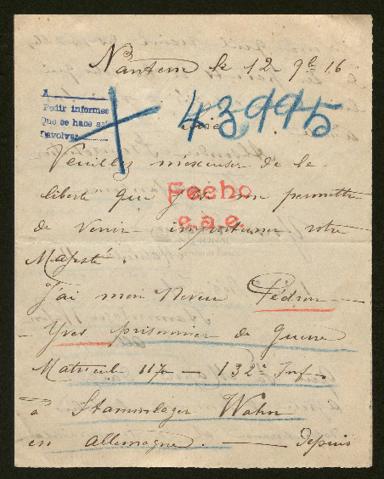 Nanterre le 12 9bre 16
A
Pedir informes
Que se hace así
Devolver
43995
Sire
Veuillez m'excuser de la
liberté que je me permette
Fecho
e.a.e.
de venir importuner votre
Majesté.
j'ai mon Neveu Pédron
Yves prisonnier de Guerre
Matricule 117 — 132e Inf.
à Stammlager Wahn
en Allemagne. — depuis